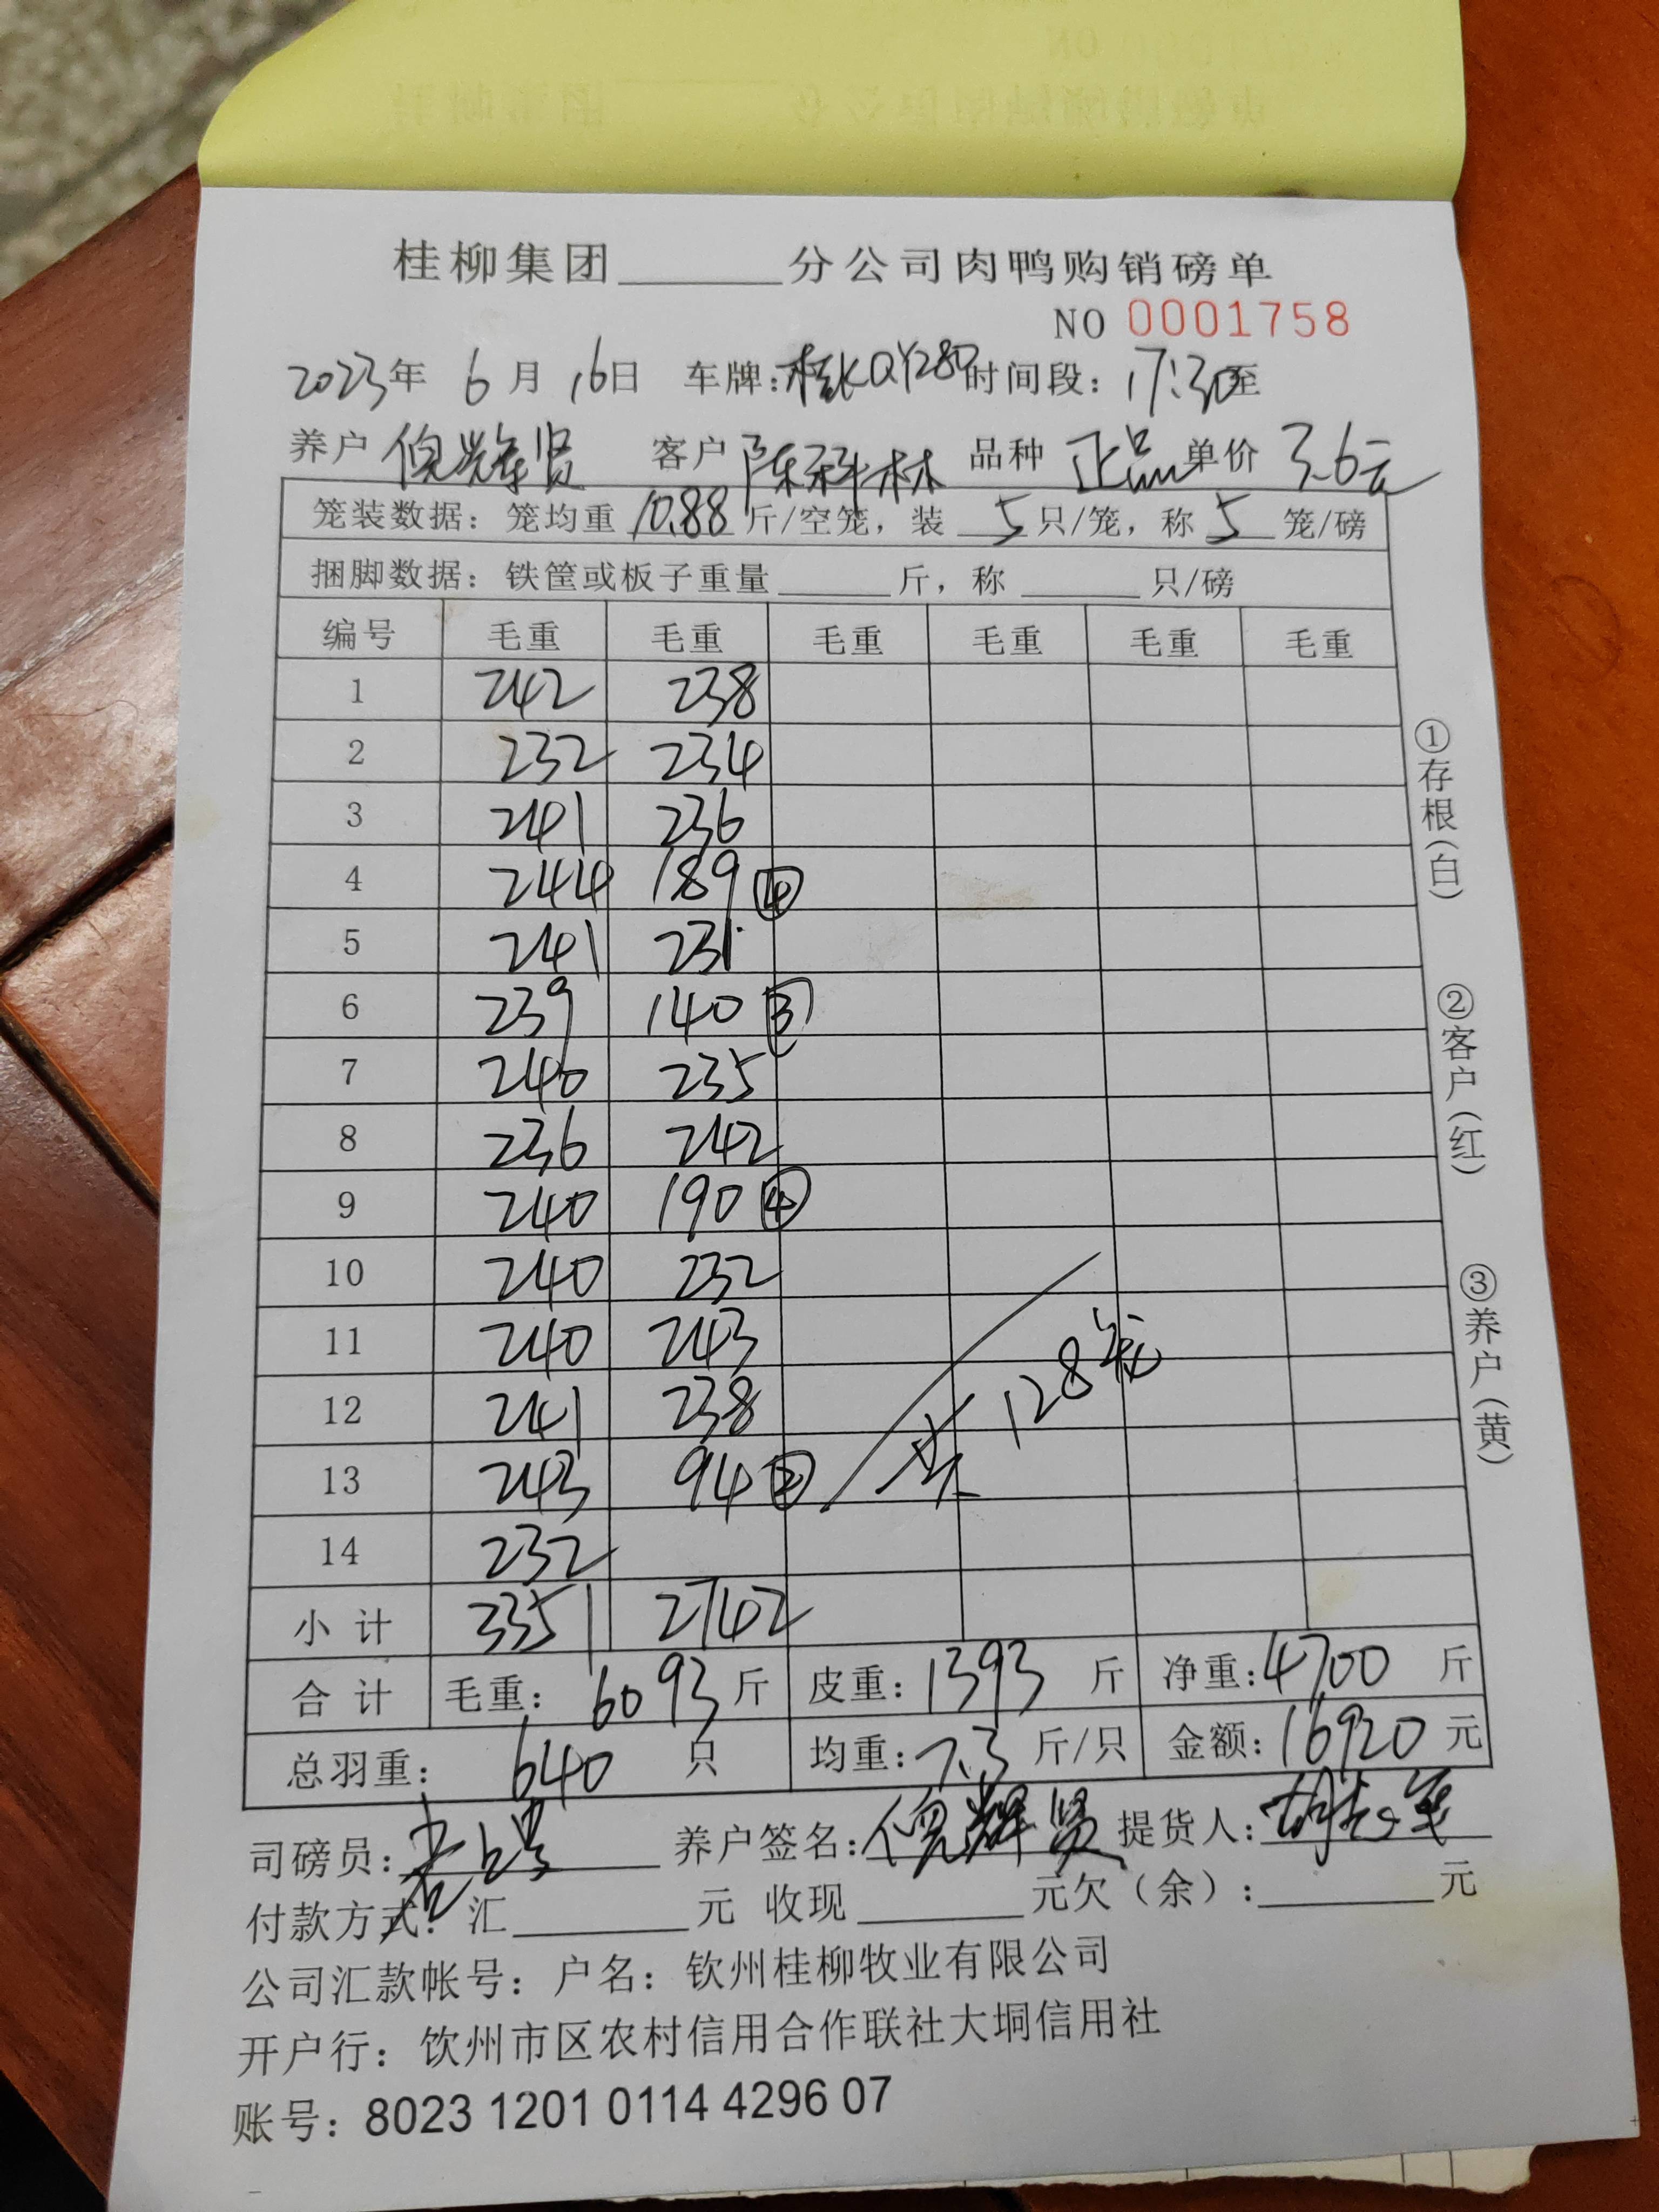 桂柳集团______分公司肉鸭购销磅单
NO 0001758
2023年 6月 16日 车牌:桂KQY280 时间段:17:30至
养户 倪辉贤 客户 陈科林 品种 正品 单价 3.6元
笼装数据:笼均重 10.88 斤/空笼,装 5 只/笼,称 5 笼/磅
捆脚数据:铁筐或板子重量______斤,称______只/磅
编号 毛重 毛重 毛重 毛重 毛重 毛重
1 242 238
2 232 234
3 241 236
4 244 189 ④
5 241 231
6 239 140 ③
7 240 235
8 236 242
9 240 190 ④
10 240 232
11 240 243
12 241 238
13 243 94 ②
14 232
共128笼
小计 3351 2742
合计 毛重:6093斤 皮重:1393斤 净重:4700斤
总羽重:640只 均重:7.3斤/只 金额:16920元
司磅员: 养户签名:倪辉贤 提货人:
付款方式:汇______元 收现______元欠(余):______元
公司汇款帐号:户名:钦州桂柳牧业有限公司
开户行:钦州市区农村信用合作联社大垌信用社
账号:8023 1201 0114 4296 07
①存根(白)
②客户(红)
③养户(黄)